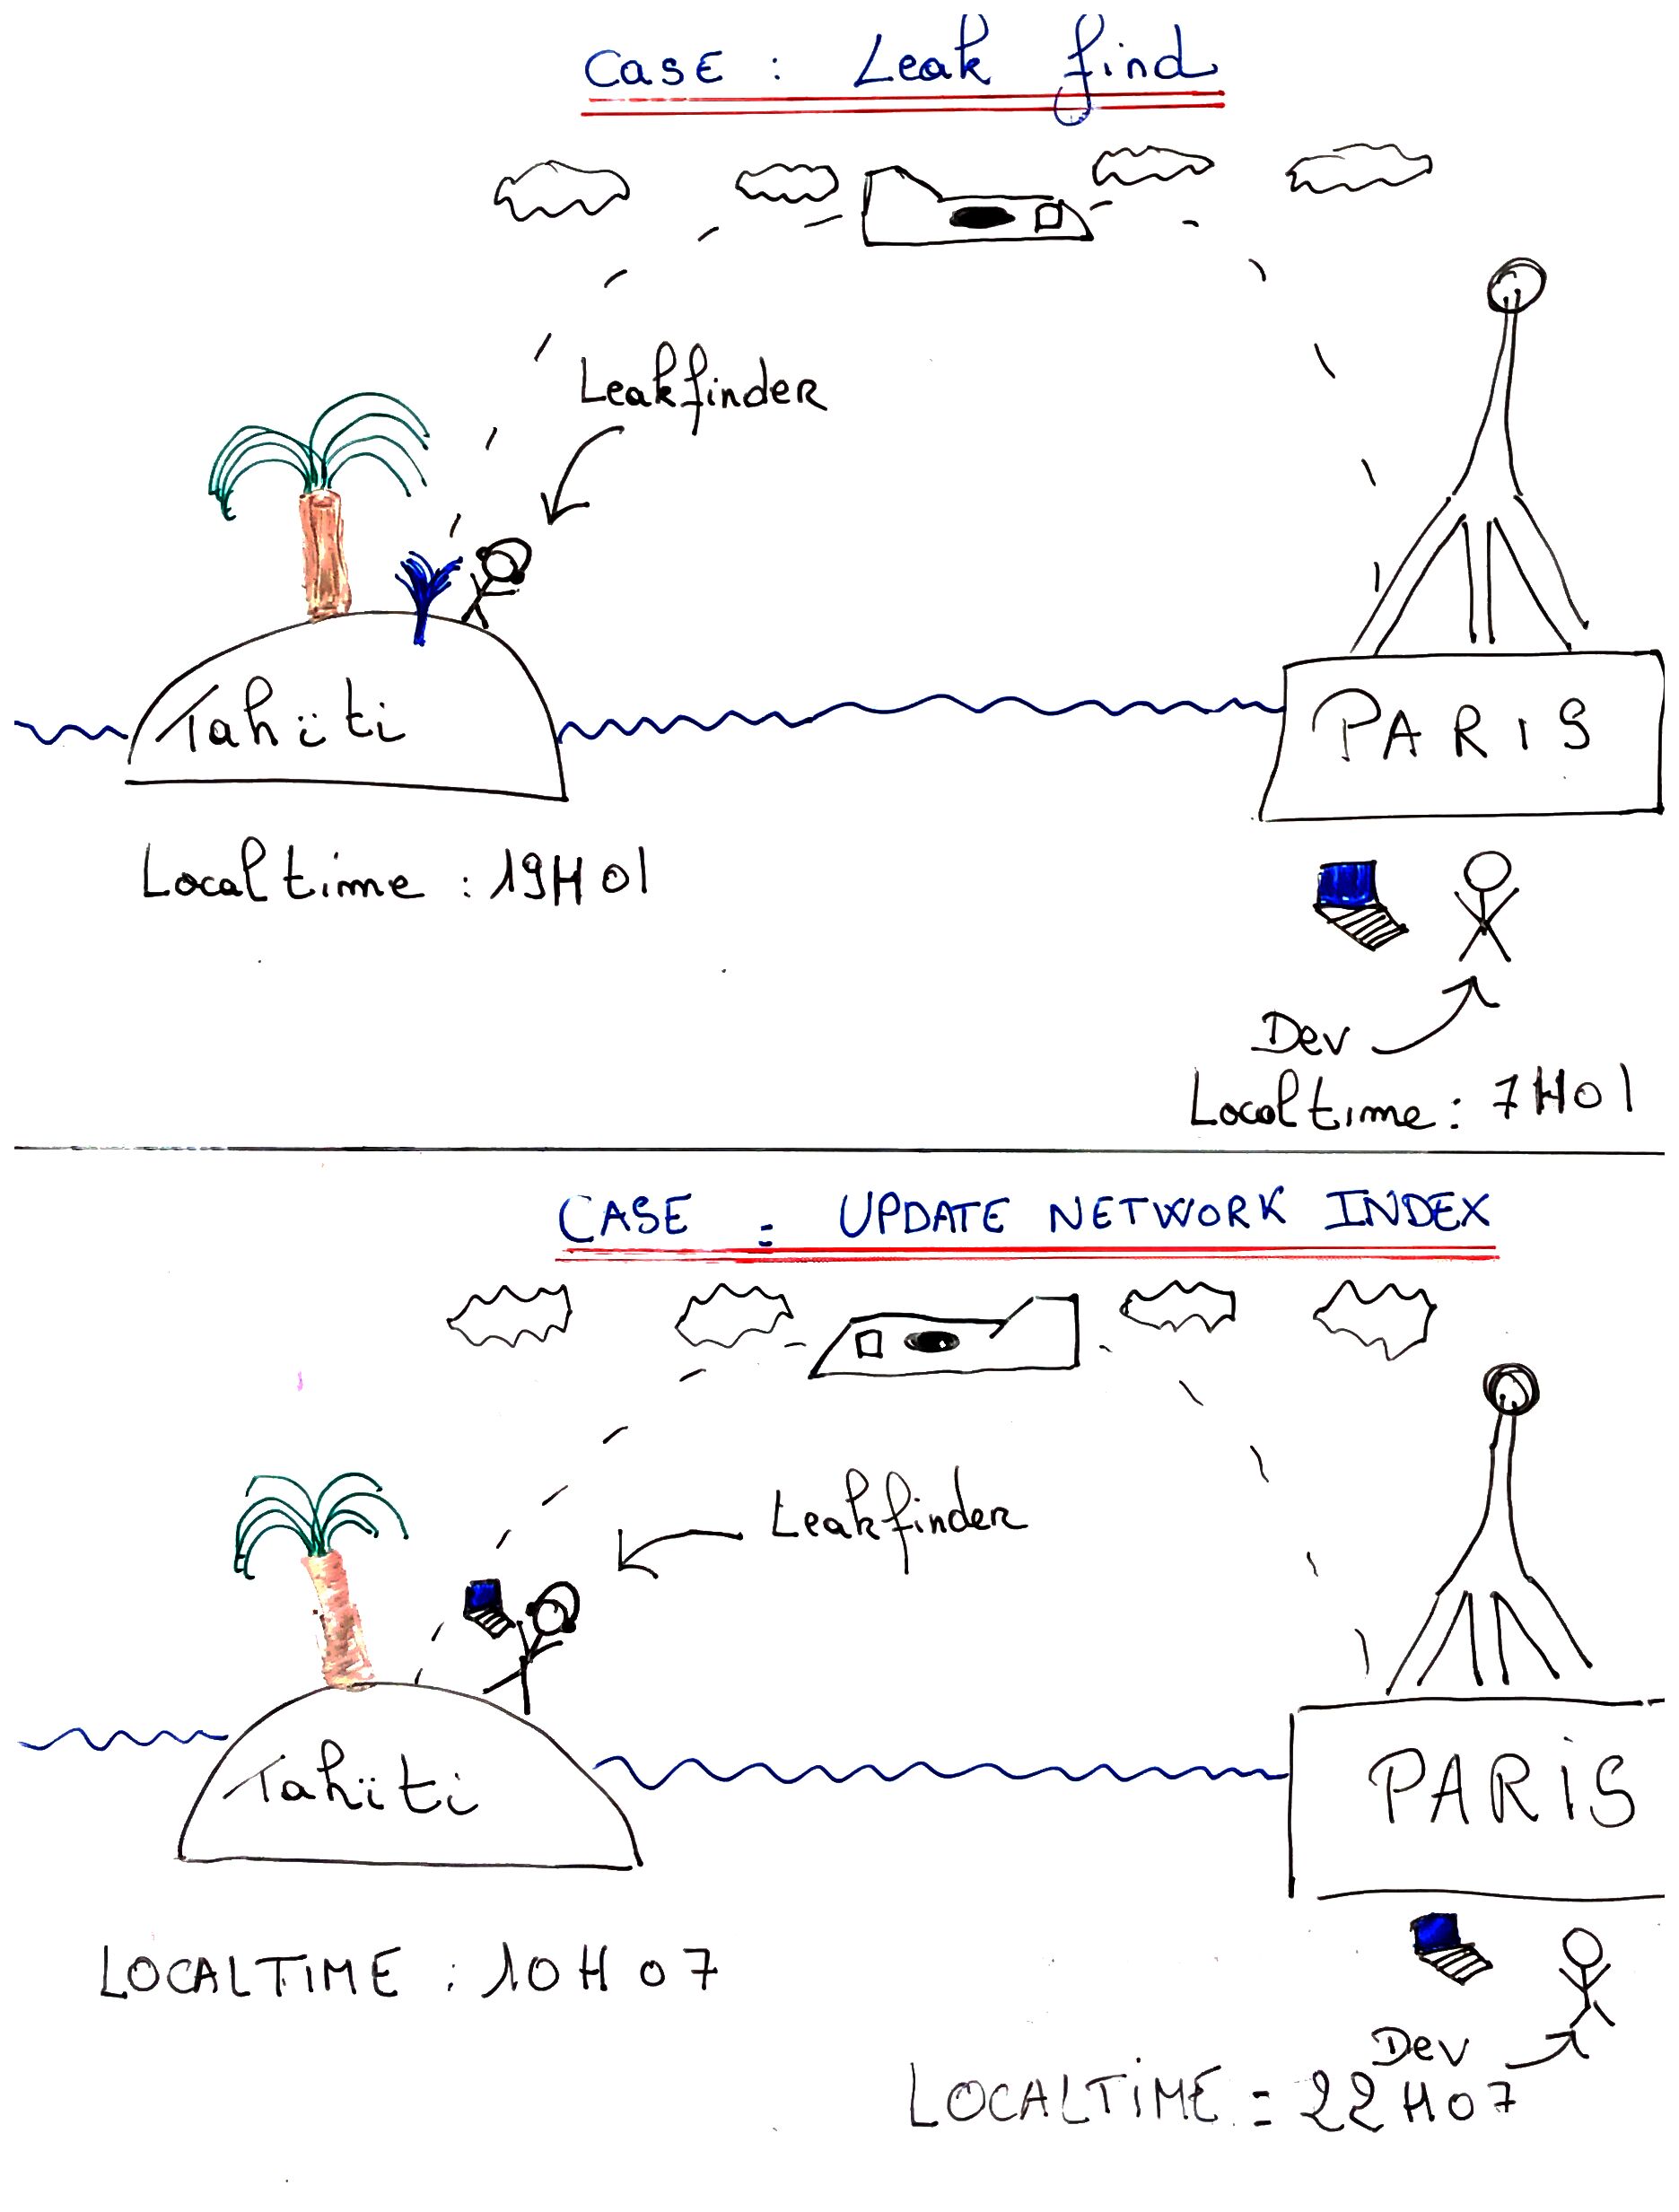 Case : Leak find
Leakfinder
Tahiti
PARIS
Local time : 19H01
Dev
Local time : 7H01
CASE = UPDATE NETWORK INDEX
Leakfinder
Tahiti
PARIS
LOCALTIME : 10H07
Dev
LOCALTIME = 22H07